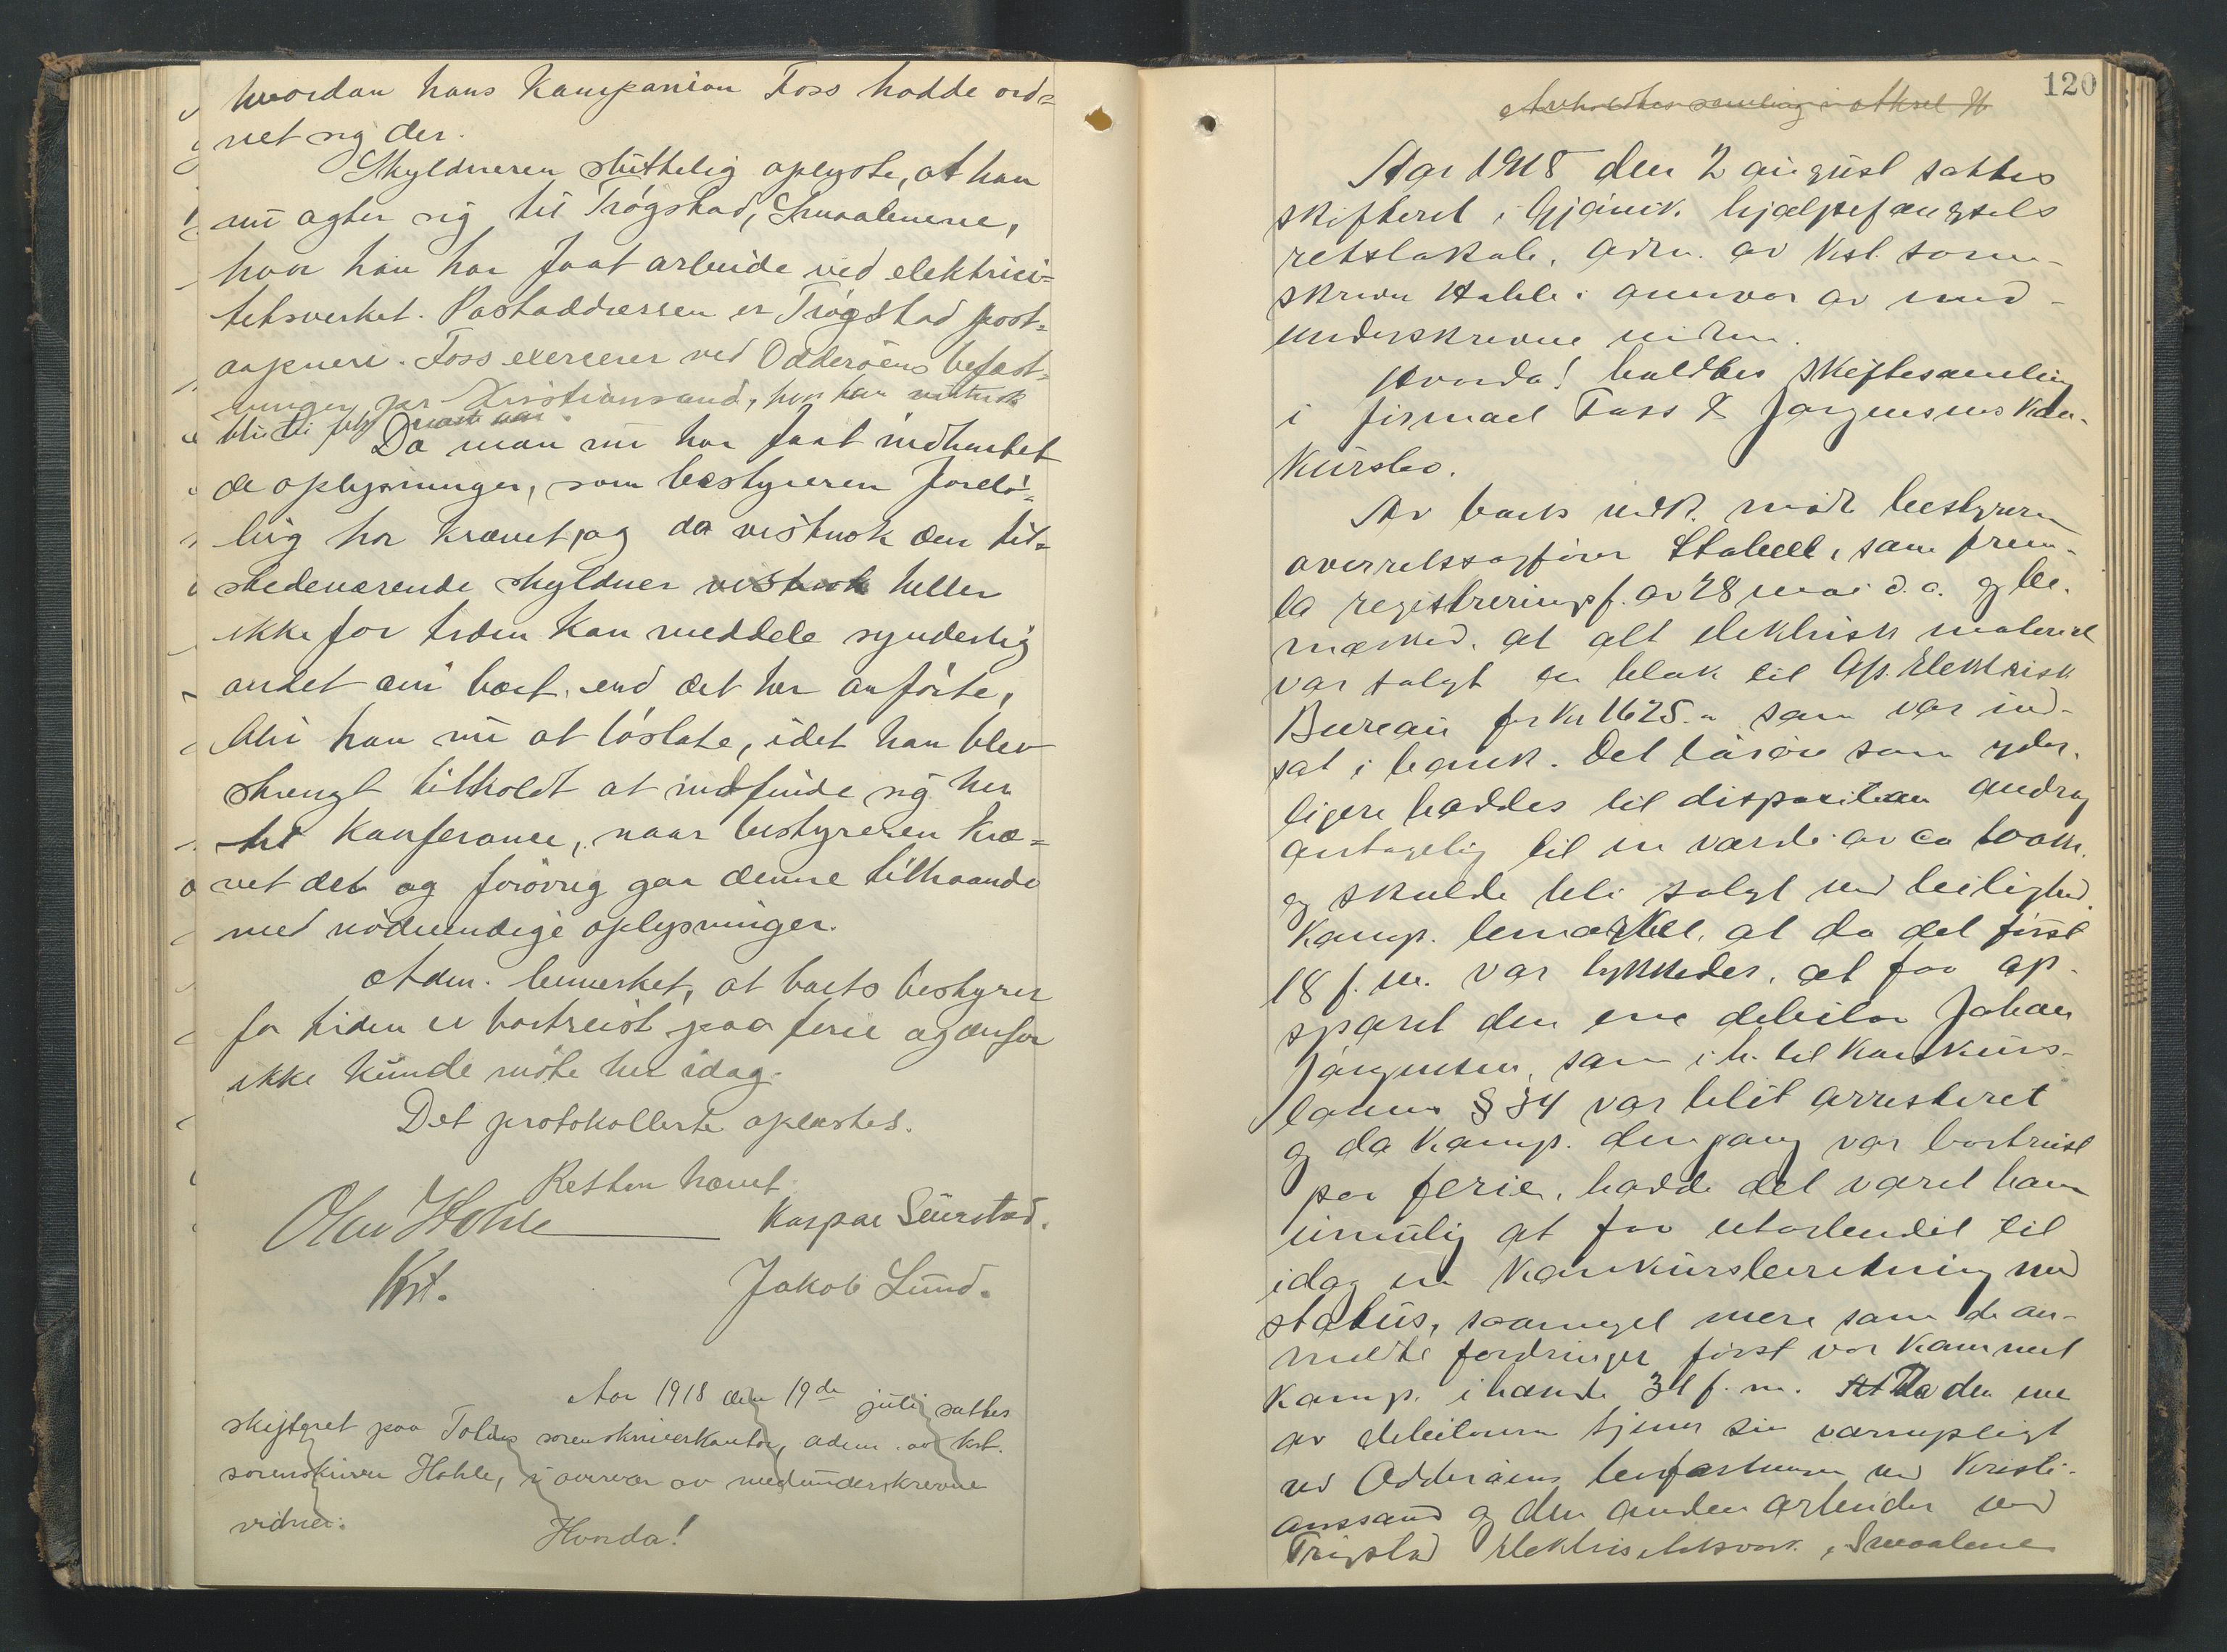 hvordan hans kampanion Foss hadde ord=
net sig der.
Skyldneren sluttelig oplyste, at han
nu agter sig til Trøgstad, Smaalenene,
hvor han har faat arbeide ved elektrici=
tetsverket. Postaddressen er Trøgstad post=
aapneri. Foss exercerer ved Odderøens befæst=
ninger par Kristianssand, hvor han
bli til
Da man nu har faat indhentet
de oplysninger, som bestyreren forelø=
big har krævet, og da vistnok den til=
stedeværende skyldner vistnok heller
ikke for tiden kan meddele synderlig
andet om boet, end det her anførte,
blir han nu at løslate, idet han blev
strengt tilholdt at indfinde sig her
til konferance, naar bestyreren kræ=
vet det og forøvrig gaa denne tilhaande
med nødvendige oplysninger.
Adm. bemerket, at boets bestyrer
for tiden er bortreist paa ferie og derfor
ikke kunde møte her idag.
Det protokollerte oplæstes.
Retten hævet.
Olav Hohle Kaspar Seierstad.
Kst. Jakob Lund.
Aar 1918 den 19de juli sattes
skifteret paa Totens sorenskriverkontor, adm. av kst.
sorenskriver Hohle, i overvær av medunderskrevne
vidner:
Hvorda!
120
Avholdtes samling i
Aar 1918 den 2 august sattes
skifteret i Gjøvik hjælpefængsels
retslokale, adm. av kst. soren-
skriver Hohle i overvær av med-
underskrevne vidner.
Hvorda! holdtes skiftesamling
i firmaet Foss & Jørgensens kon-
kursbo.
Av boets vedk. møtte bestyreren
overretssagfører Stabell, som frem-
la registreringsf. av 28 mai d.a. og be-
merket, at alt elektrisk materiel
var solgt en blok til A/s. Elektrisk
Bureau for Kr 1625.- som var ind-
sat i bank. Det løsøre som yder-
ligere haddes til disposition androg
antagelig til en værdi av ca
og skulde bli solgt ved leilighed.
Komp. bemerket, at da det først
18 f. m. var lykkedes, at faa op-
sporet den ene debitor Johan
Jørgensen, som i h. til konkurs-
lovens § 34 var blit arresteret
og da komp. dengang var bortreist
paa ferie, hadde det været ham
umulig at faa utarbeidet til
idag en konkursberetning med
status, saameget mere som de an-
meldte fordringer først var kommet
komp. ihænde 31 f. m. At Da den ene
av debitorerne tjener sin værnepligt
ved Odderøens befæstninger ved Kristi-
anssand og den anden arbeider ved
Trøgstad elektrisitetsverk, Smaalene